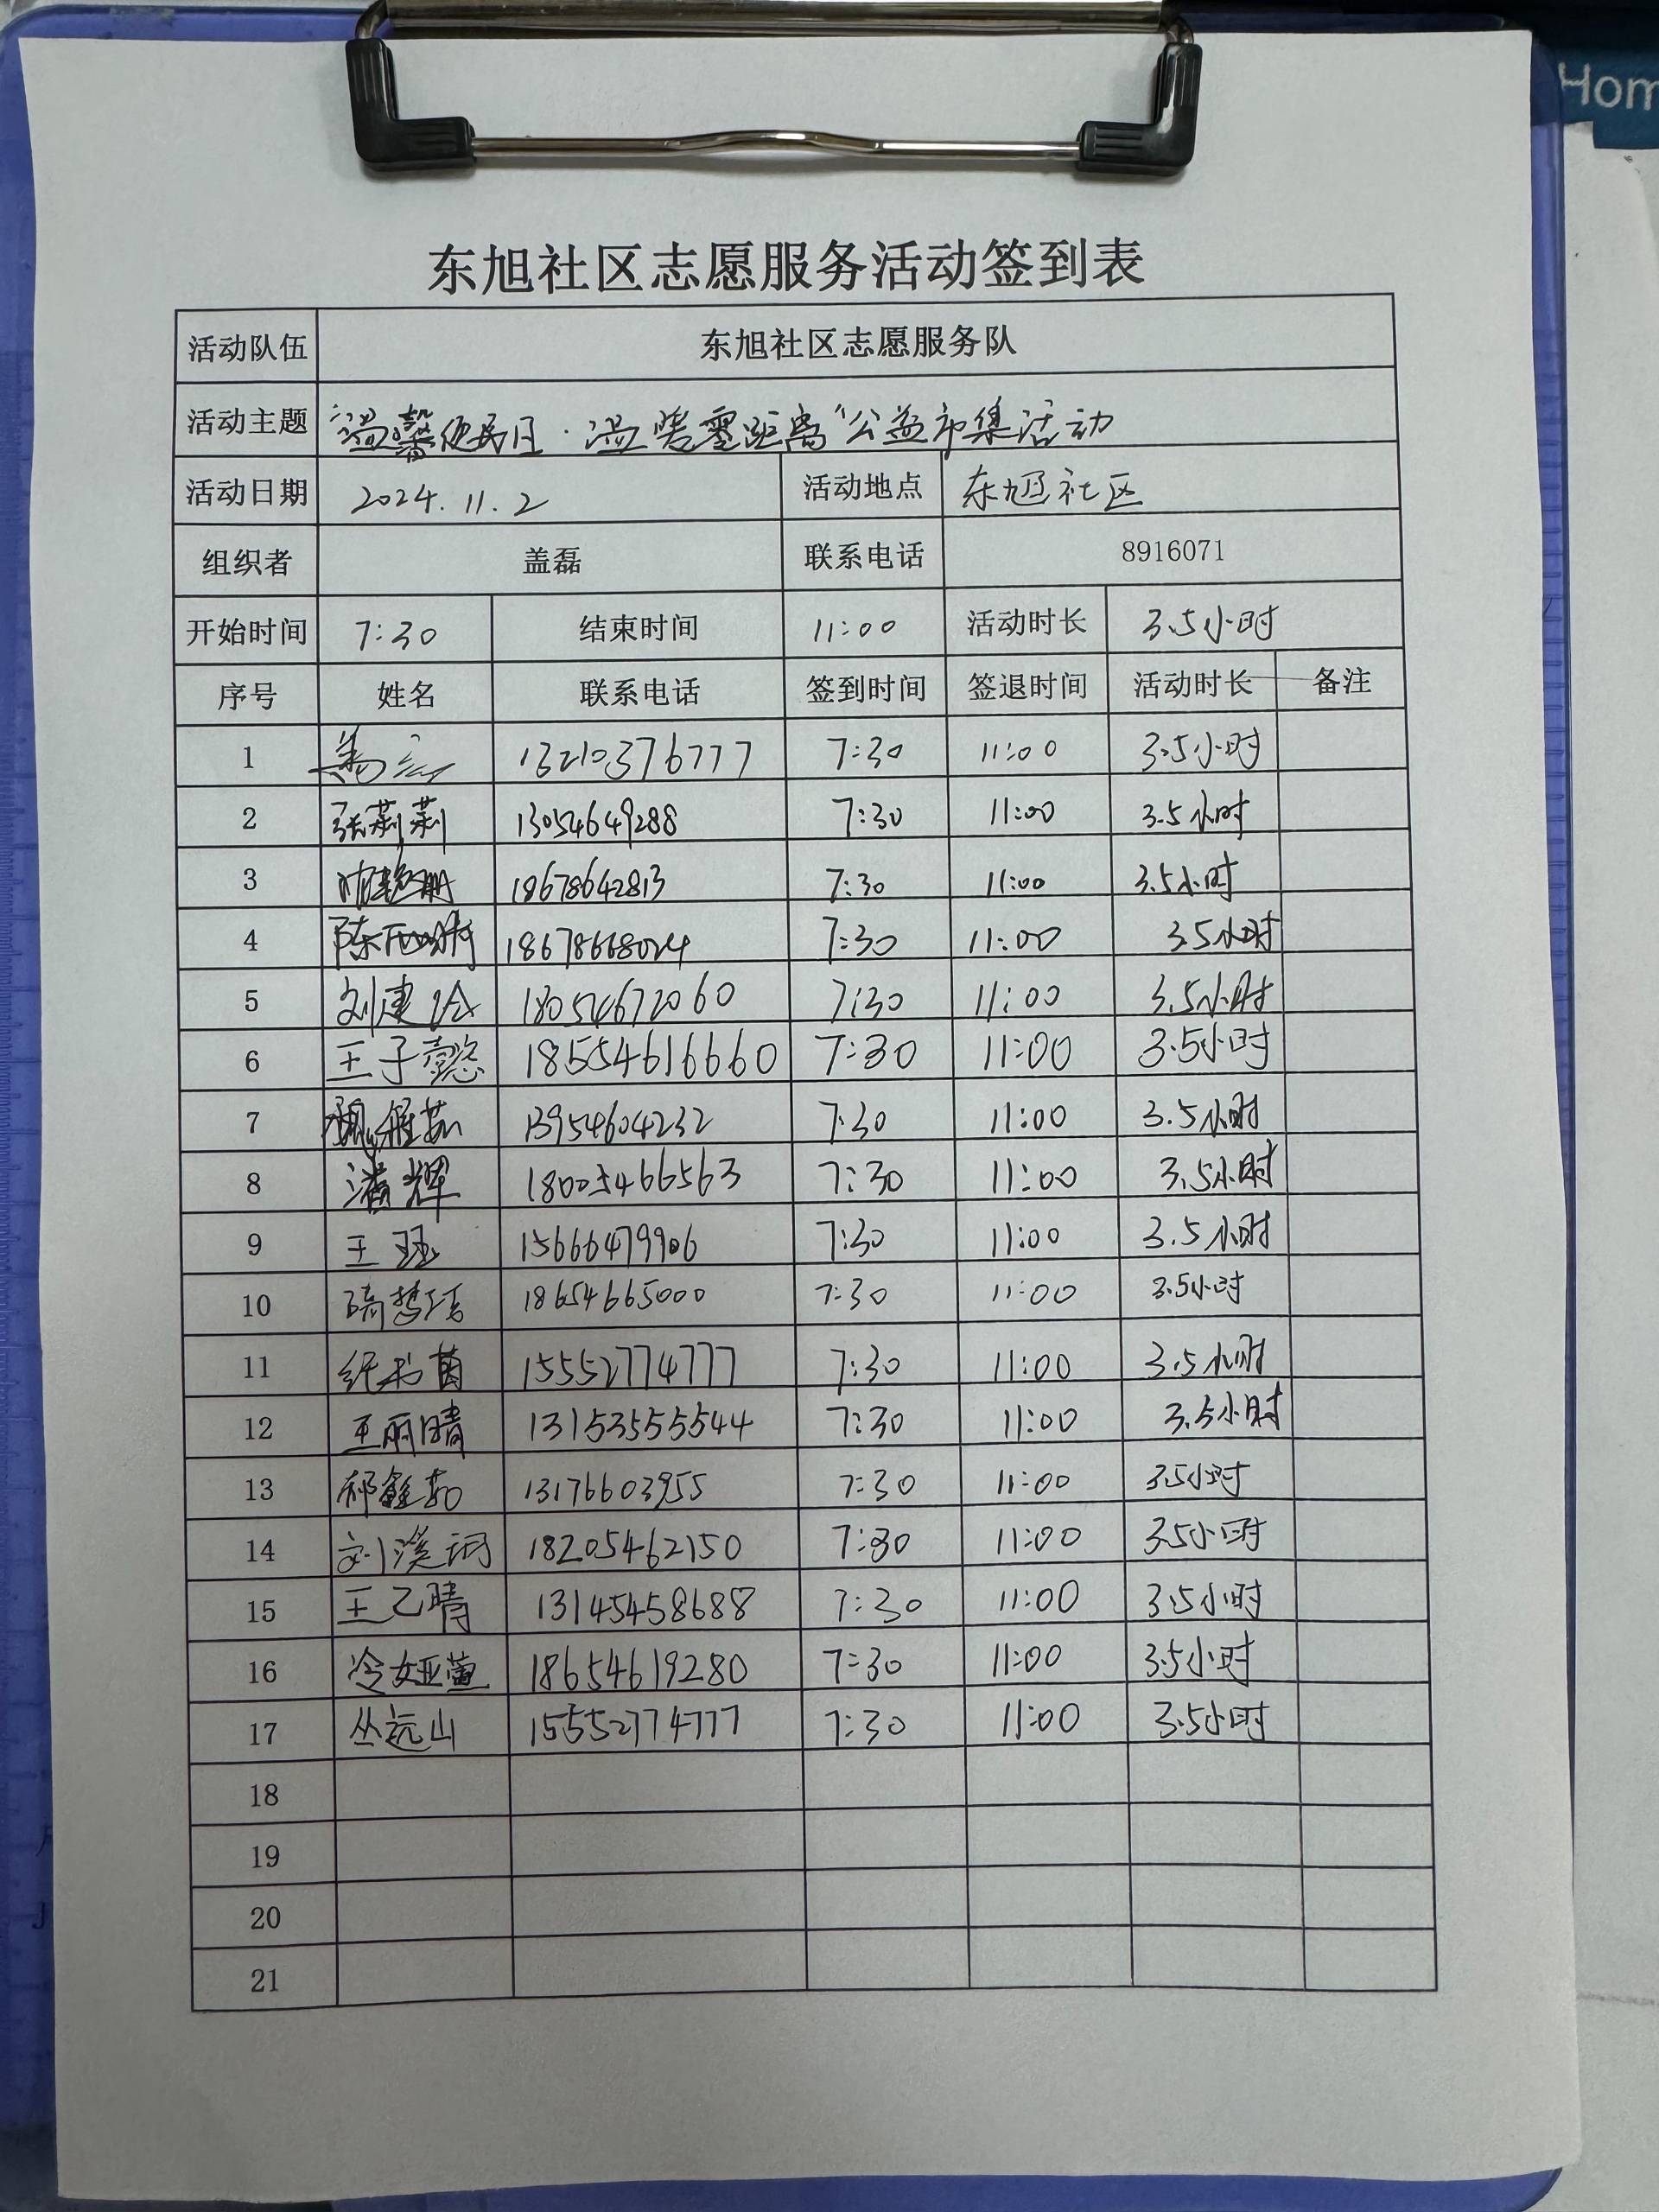 Hom
东旭社区志愿服务活动签到表
活动队伍 东旭社区志愿服务队
活动主题 "温馨便民日·温暖零距离"公益市集活动
活动日期 2024.11.2 活动地点 东旭社区
组织者 盖磊 联系电话 8916071
开始时间 7:30 结束时间 11:00 活动时长 3.5小时
序号 姓名 联系电话 签到时间 签退时间 活动时长 备注
1 13210376777 7:30 11:00 3.5小时
2 张莉莉 13054649288 7:30 11:00 3.5小时
3 18678642813 7:30 11:00 3.5小时
4 18678668024 7:30 11:00 3.5小时
5 刘建 18054672060 7:30 11:00 3.5小时
6 王子懿 18554616660 7:30 11:00 3.5小时
7 魏雅茹 13954604232 7:30 11:00 3.5小时
8 潘辉 18005466563 7:30 11:00 3.5小时
9 王珏 15666479906 7:30 11:00 3.5小时
10 18654665000 7:30 11:00 3.5小时
11 纪书茵 15552774777 7:30 11:00 3.5小时
12 王丽晴 13153555544 7:30 11:00 3.5小时
13 祁鑫茹 13176603955 7:30 11:00 3.5小时
14 刘溪 18205462150 7:30 11:00 3.5小时
15 王乙晴 13145458688 7:30 11:00 3.5小时
16 冷娅萱 18654619280 7:30 11:00 3.5小时
17 丛远山 15552774777 7:30 11:00 3.5小时
18
19
20
21